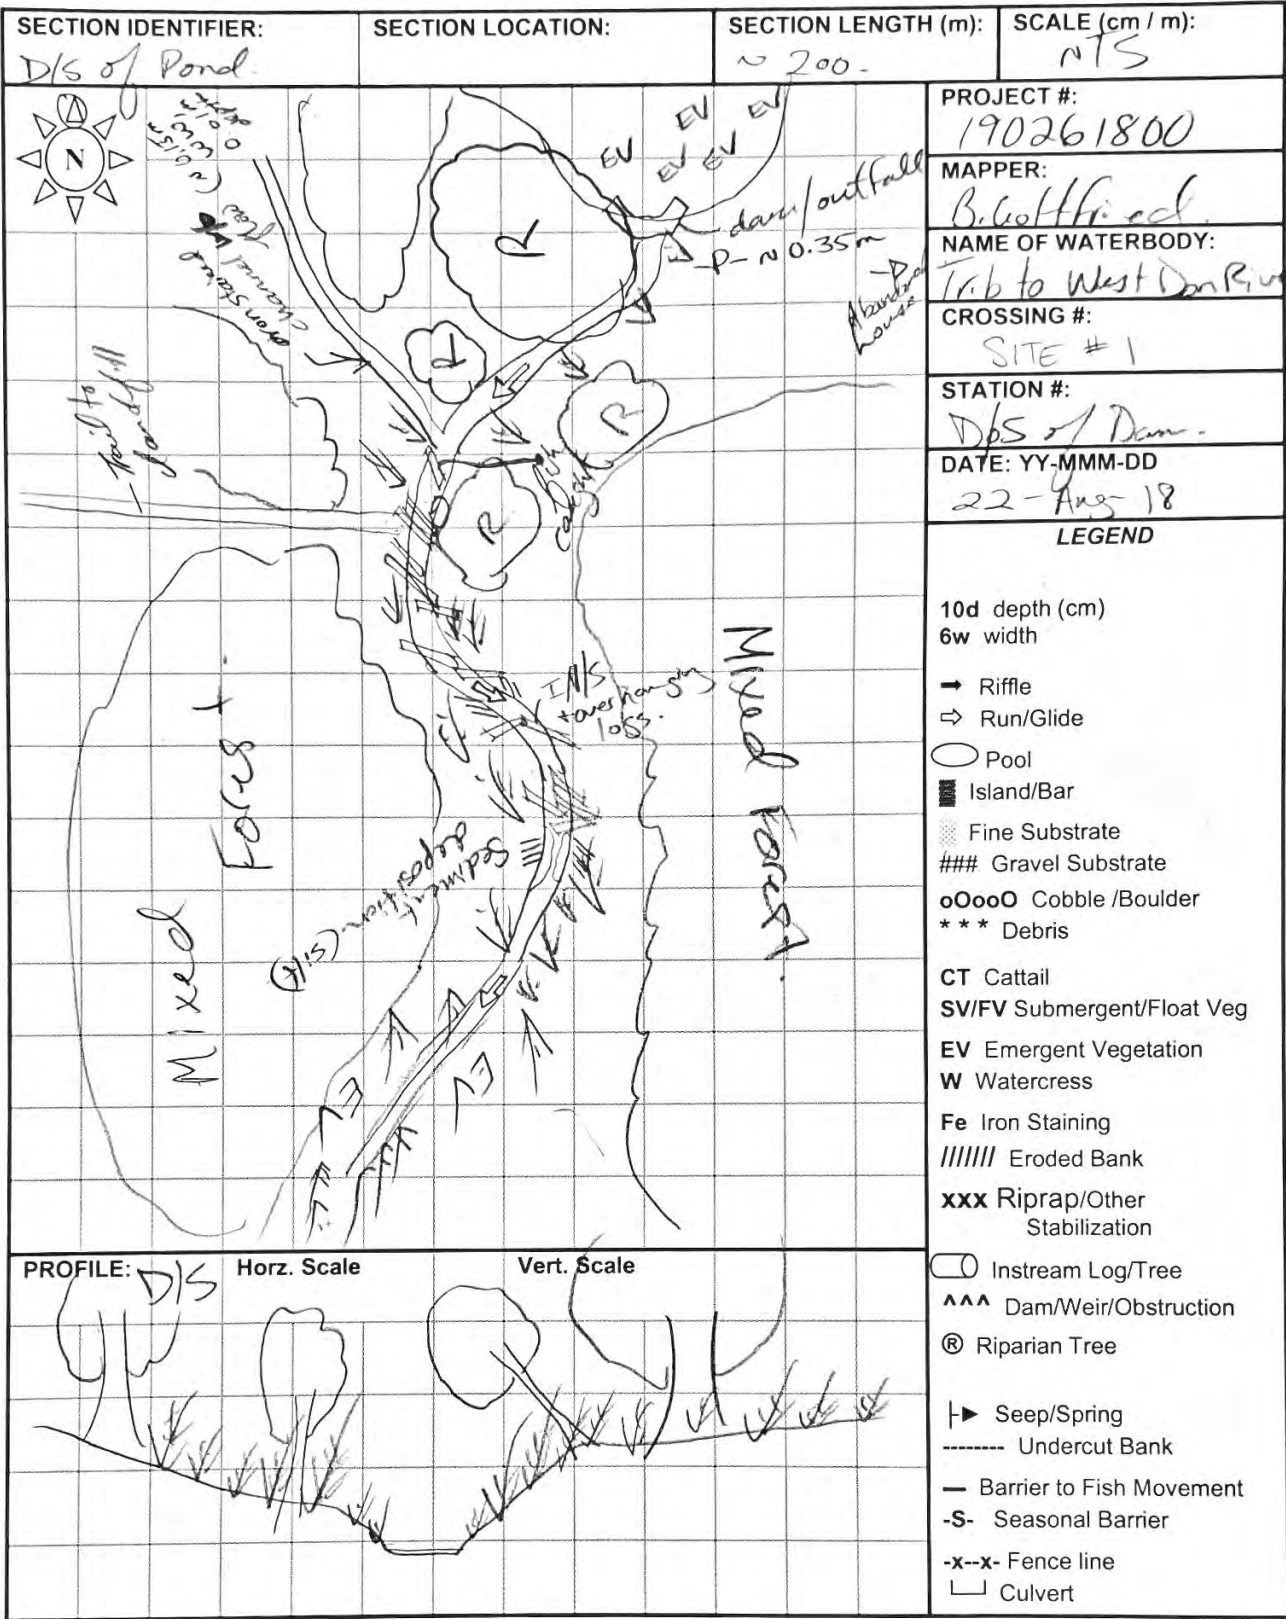 SECTION IDENTIFIER:
D/S of Pond.
SECTION LOCATION:
SECTION LENGTH (m):
~ 200.
SCALE (cm / m):
NTS
PROJECT #:
190261800
MAPPER:
B.
NAME OF WATERBODY:
Trib to West Don Rive
CROSSING #:
SITE # 1
STATION #:
D/S of Dam.
DATE: YY-MMM-DD
22 - Aug - 18
N
(~ 0.15m
WW,
0.01m
depth
iron stained
channel
flow
EV
EV
EV
EV
EV
dam/outfall
-P- ~ 0.35m
Abandoned
house
R
R
R
R
- Trail to
fish
caught
I/N/S
+ overhanging
logs.
Sediment
deposition
(silt)
Mixed
Forest.
Mixed Forest.
EV
EV
LEGEND
10d depth (cm)
6w width
Riffle
Run/Glide
Pool
Island/Bar
Fine Substrate
### Gravel Substrate
oOooO Cobble /Boulder
* * * Debris
CT Cattail
SV/FV Submergent/Float Veg
EV Emergent Vegetation
W Watercress
Fe Iron Staining
/////// Eroded Bank
xxx Riprap/Other
Stabilization
Instream Log/Tree
^^^ Dam/Weir/Obstruction
® Riparian Tree
Seep/Spring
-------- Undercut Bank
— Barrier to Fish Movement
-S- Seasonal Barrier
-x--x- Fence line
Culvert
PROFILE: D/S
Horz. Scale
Vert. Scale